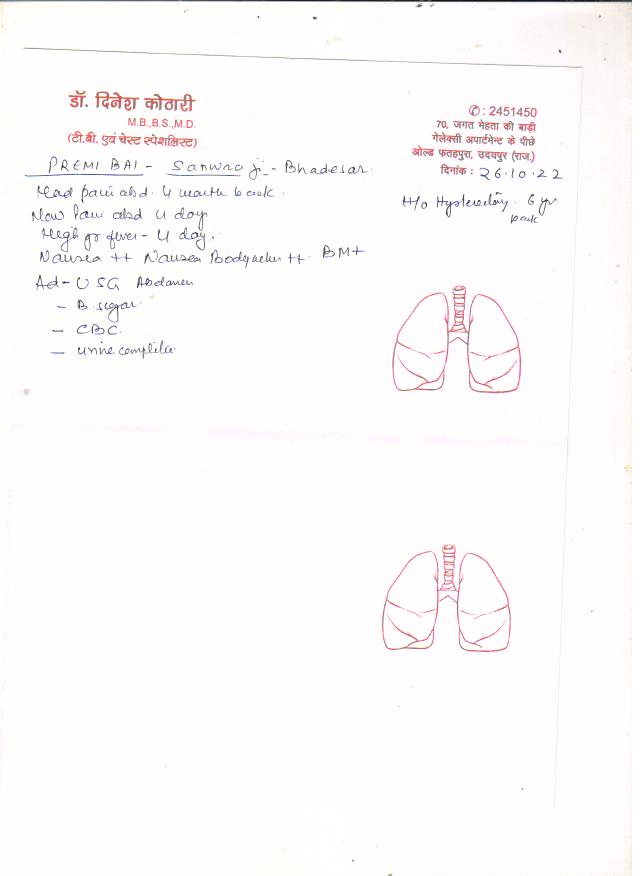 डॉ. दिनेश कोठारी
M.B.,B.S.,M.D.
(टी.बी. एवं चेस्ट स्पेशलिस्ट)
✆ : 2451450
70, जगत मेहता की बाड़ी
गेलेक्सी अपार्टमेन्ट के पीछे
ओल्ड फतहपुरा, उदयपुर (राज.)
दिनांक : 26.10.22
PREMI BAI - Sanwra ji - Bhadesar.
Had pain abd. 4 month back.
H/o Hysterectomy. 6 yr
back
Now Pain abd 4 day
High gr fever - 4 day.
Nausea ++ Nausea Bodyaches ++. BM+
Ad - USG Abdomen
- B. sugar.
- CBC.
- urine complete